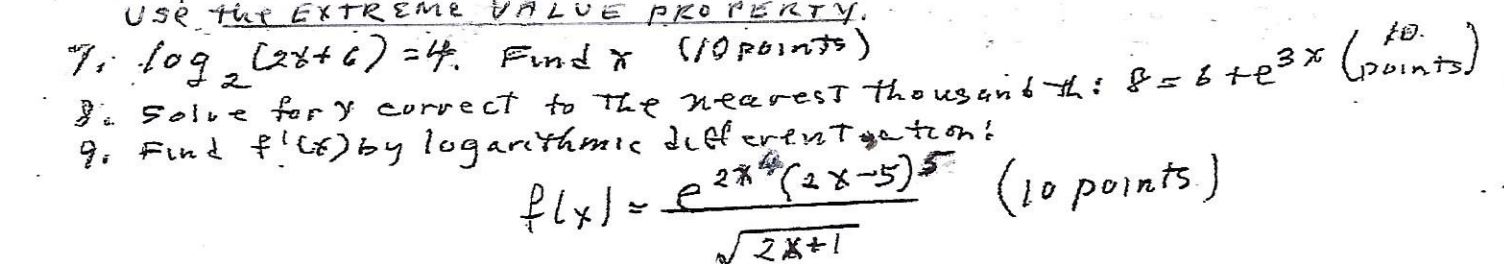 USE the EXTREME VALUE PROPERTY.
7. log₂(2x+6)=4. Find x (10 points)
8. Solve for x correct to the nearest thousandth: 8=6+e^{3x} (10 points)
9. Find f'(x) by logarithmic differentiation:
f(x) = \frac{e^{2x^4}(2x-5)^5}{\sqrt{2x+1}} (10 points)